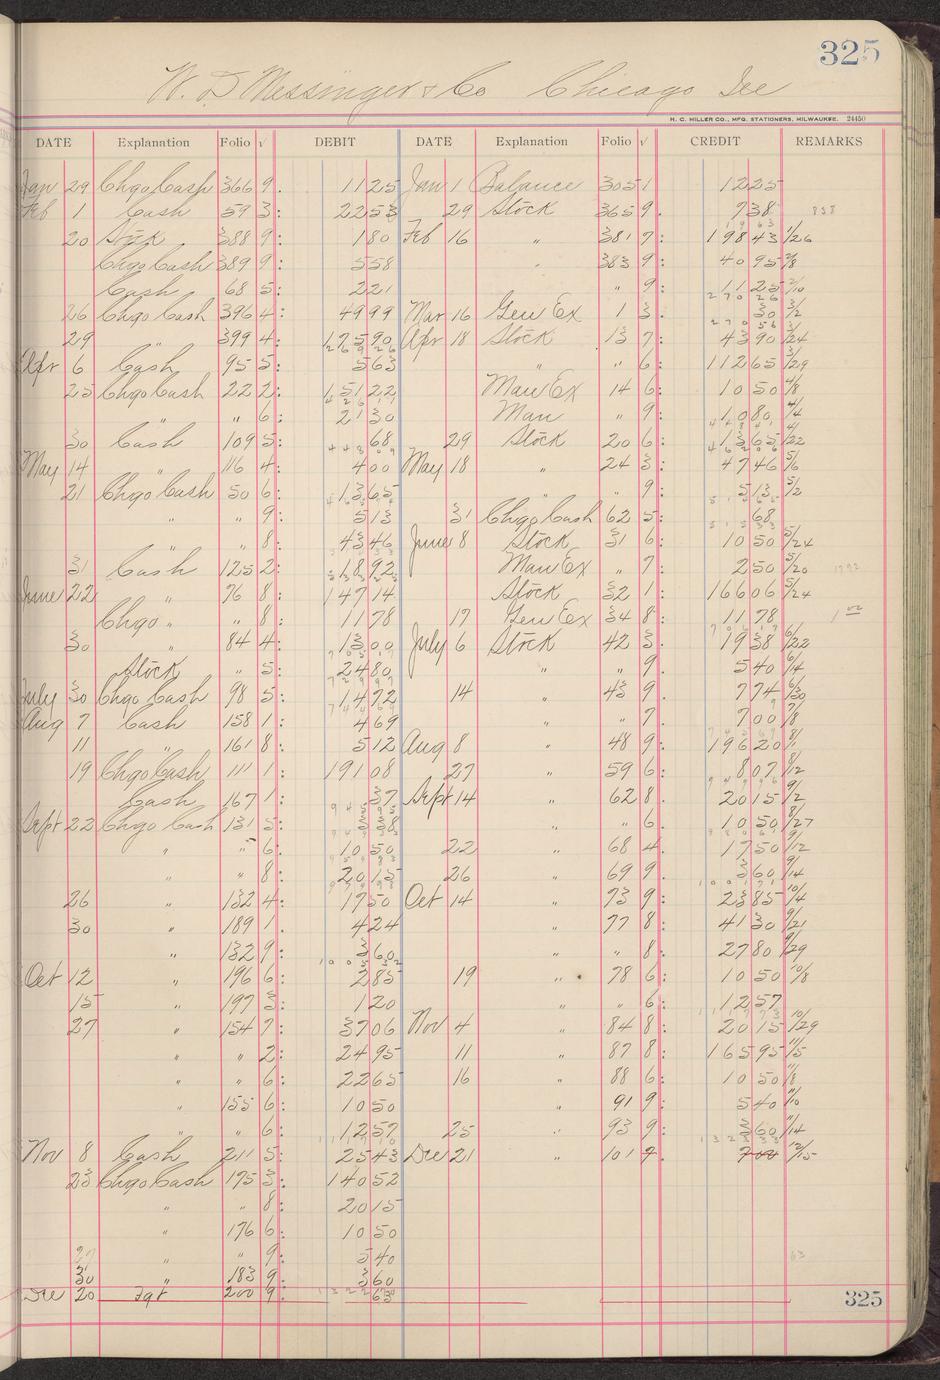 325
W. D Messinger & Co Chicago Ill
H. C. MILLER CO., MFG. STATIONERS, MILWAUKEE. 24450
DATE Explanation Folio √ DEBIT DATE Explanation Folio √ CREDIT REMARKS
Jan 29 Chgo Cash 366 9. 11 25 Jan 1 Balance 305 1 12 25
Feb 1 Cash 59 3: 22 53 29 Stock 365 9. 7 38 838
20 Stock 388 9: 1 80 Feb 16 " 381 7: 198 43 1/26
Chgo Cash 389 9: 5 58 " 383 9: 40 95 2/8
Cash 68 5: 2 21 " 9: 11 25 2/10
26 Chgo Cash 396 4: 49 99 Mar 16 Gen Ex 1 3. 30 3/2
29 " 399 4: 125 90 Apr 18 Stock 13 7: 43 90 3/24
Apr 6 Cash 95 5: 5 63 " " 6: 112 65 3/29
25 Chgo Cash 22 2: 151 22 Man Ex 14 6: 10 50 4/8
" " 6: 21 30 Man " 9: 10 80 4/4
30 Cash 109 5: 68 29 Stock 20 6: 13 65 4/22
May 14 " 116 4: 4 00 May 18 " 24 3: 47 46 5/6
21 Chgo Cash 50 6: 13 65 " " 9: 5 13 5/2
" " 9: 5 13 31 Chgo Cash 62 5: 68
" " 8: 43 46 June 8 Stock 31 6: 10 50 5/24
31 Cash 125 2: 18 92 Man Ex " 7: 2 50 5/20
June 22 " 76 8: 147 14 Stock 32 1: 166 06 5/24
Chgo " " 8: 11 78 17 Gen Ex 34 8: 11 78 1 00
30 " 84 4: 13 00 July 6 Stock 42 3: 19 38 6/22
Stock " 5: 24 80 " " 9. 5 40 6/14
July 30 Chgo Cash 98 5: 14 72 14 " 43 9. 7 74 6/30
Aug 7 Cash 158 1: 4 69 " " 7. 7 00 7/8
11 " 161 8: 5 12 Aug 8 " 48 9: 196 20 8/1
19 Chgo Cash 111 1: 191 08 27 " 59 6: 8 07 8/12
Cash 167 1: 37 Sept 14 " 62 8. 20 15 9/2
Sept 22 Chgo Cash 131 5: " " 6. 10 50 8/27
" " 6. 10 50 22 " 68 4. 17 50 9/12
" " 8: 20 15 26 " 69 9. 3 60 9/14
26 " 132 4: 17 50 Oct 14 " 73 9: 23 85 10/4
30 " 189 1. 4 24 " 77 8: 41 30 9/21
" 132 9: 3 60 " " 8: 27 80 9/29
Oct 12 " 196 6: 2 85 19 " 78 6: 10 50 10/8
15 " 197 3: 1 20 " " 6: 12 57
27 " 154 7: 37 06 Nov 4 " 84 8: 20 15 10/29
" " 2: 24 95 11 " 87 8: 165 95 11/5
" " 6: 22 65 16 " 88 6: 10 50 11/8
" 155 6: 10 50 " 91 9: 5 40 11/10
" " 6: 12 57 25 " 93 9: 3 60 11/14
Nov 8 Cash 211 5: 25 43 Dec 21 " 101 7 7 00 12/15
23 Chgo Cash 175 3: 140 52
" " 8: 20 15
" 176 6: 10 50
27 " " 9: 5 40 63
30 " 183 9: 3 60
Dec 20 Fgt 200 9. 63
325